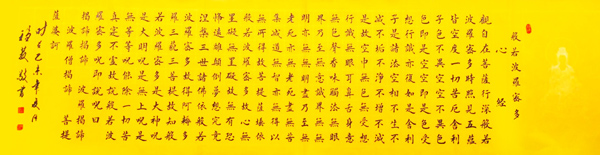 般若波羅蜜多
心經
觀自在菩薩行深般若
波羅蜜多時照見五蘊
皆空度一切苦厄舍利
子色不異空空不異色
色即是空空即是色受
想行識亦復如是舍利
子是諸法空相不生不
滅不垢不淨不增不減
是故空中無色無受想
行識無眼耳鼻舌身意
無色聲香味觸法無眼
界乃至無意識界無無
明亦無無明盡乃至無
老死亦無老死盡無苦
集滅道無智亦無得以
無所得故菩提薩埵依
般若波羅蜜多故心無
罣礙無罣礙故無有恐
怖遠離顛倒夢想究竟
涅槃三世諸佛依般若
波羅蜜多故得阿耨多
羅三藐三菩提故知般
若波羅蜜多是大神咒
是大明咒是無上咒是
無等等咒能除一切苦
真實不虛故說般若波
羅蜜多咒即說咒曰
揭諦揭諦 波羅揭諦
波羅僧揭諦 菩提
薩婆訶
己未年夏月
敬書